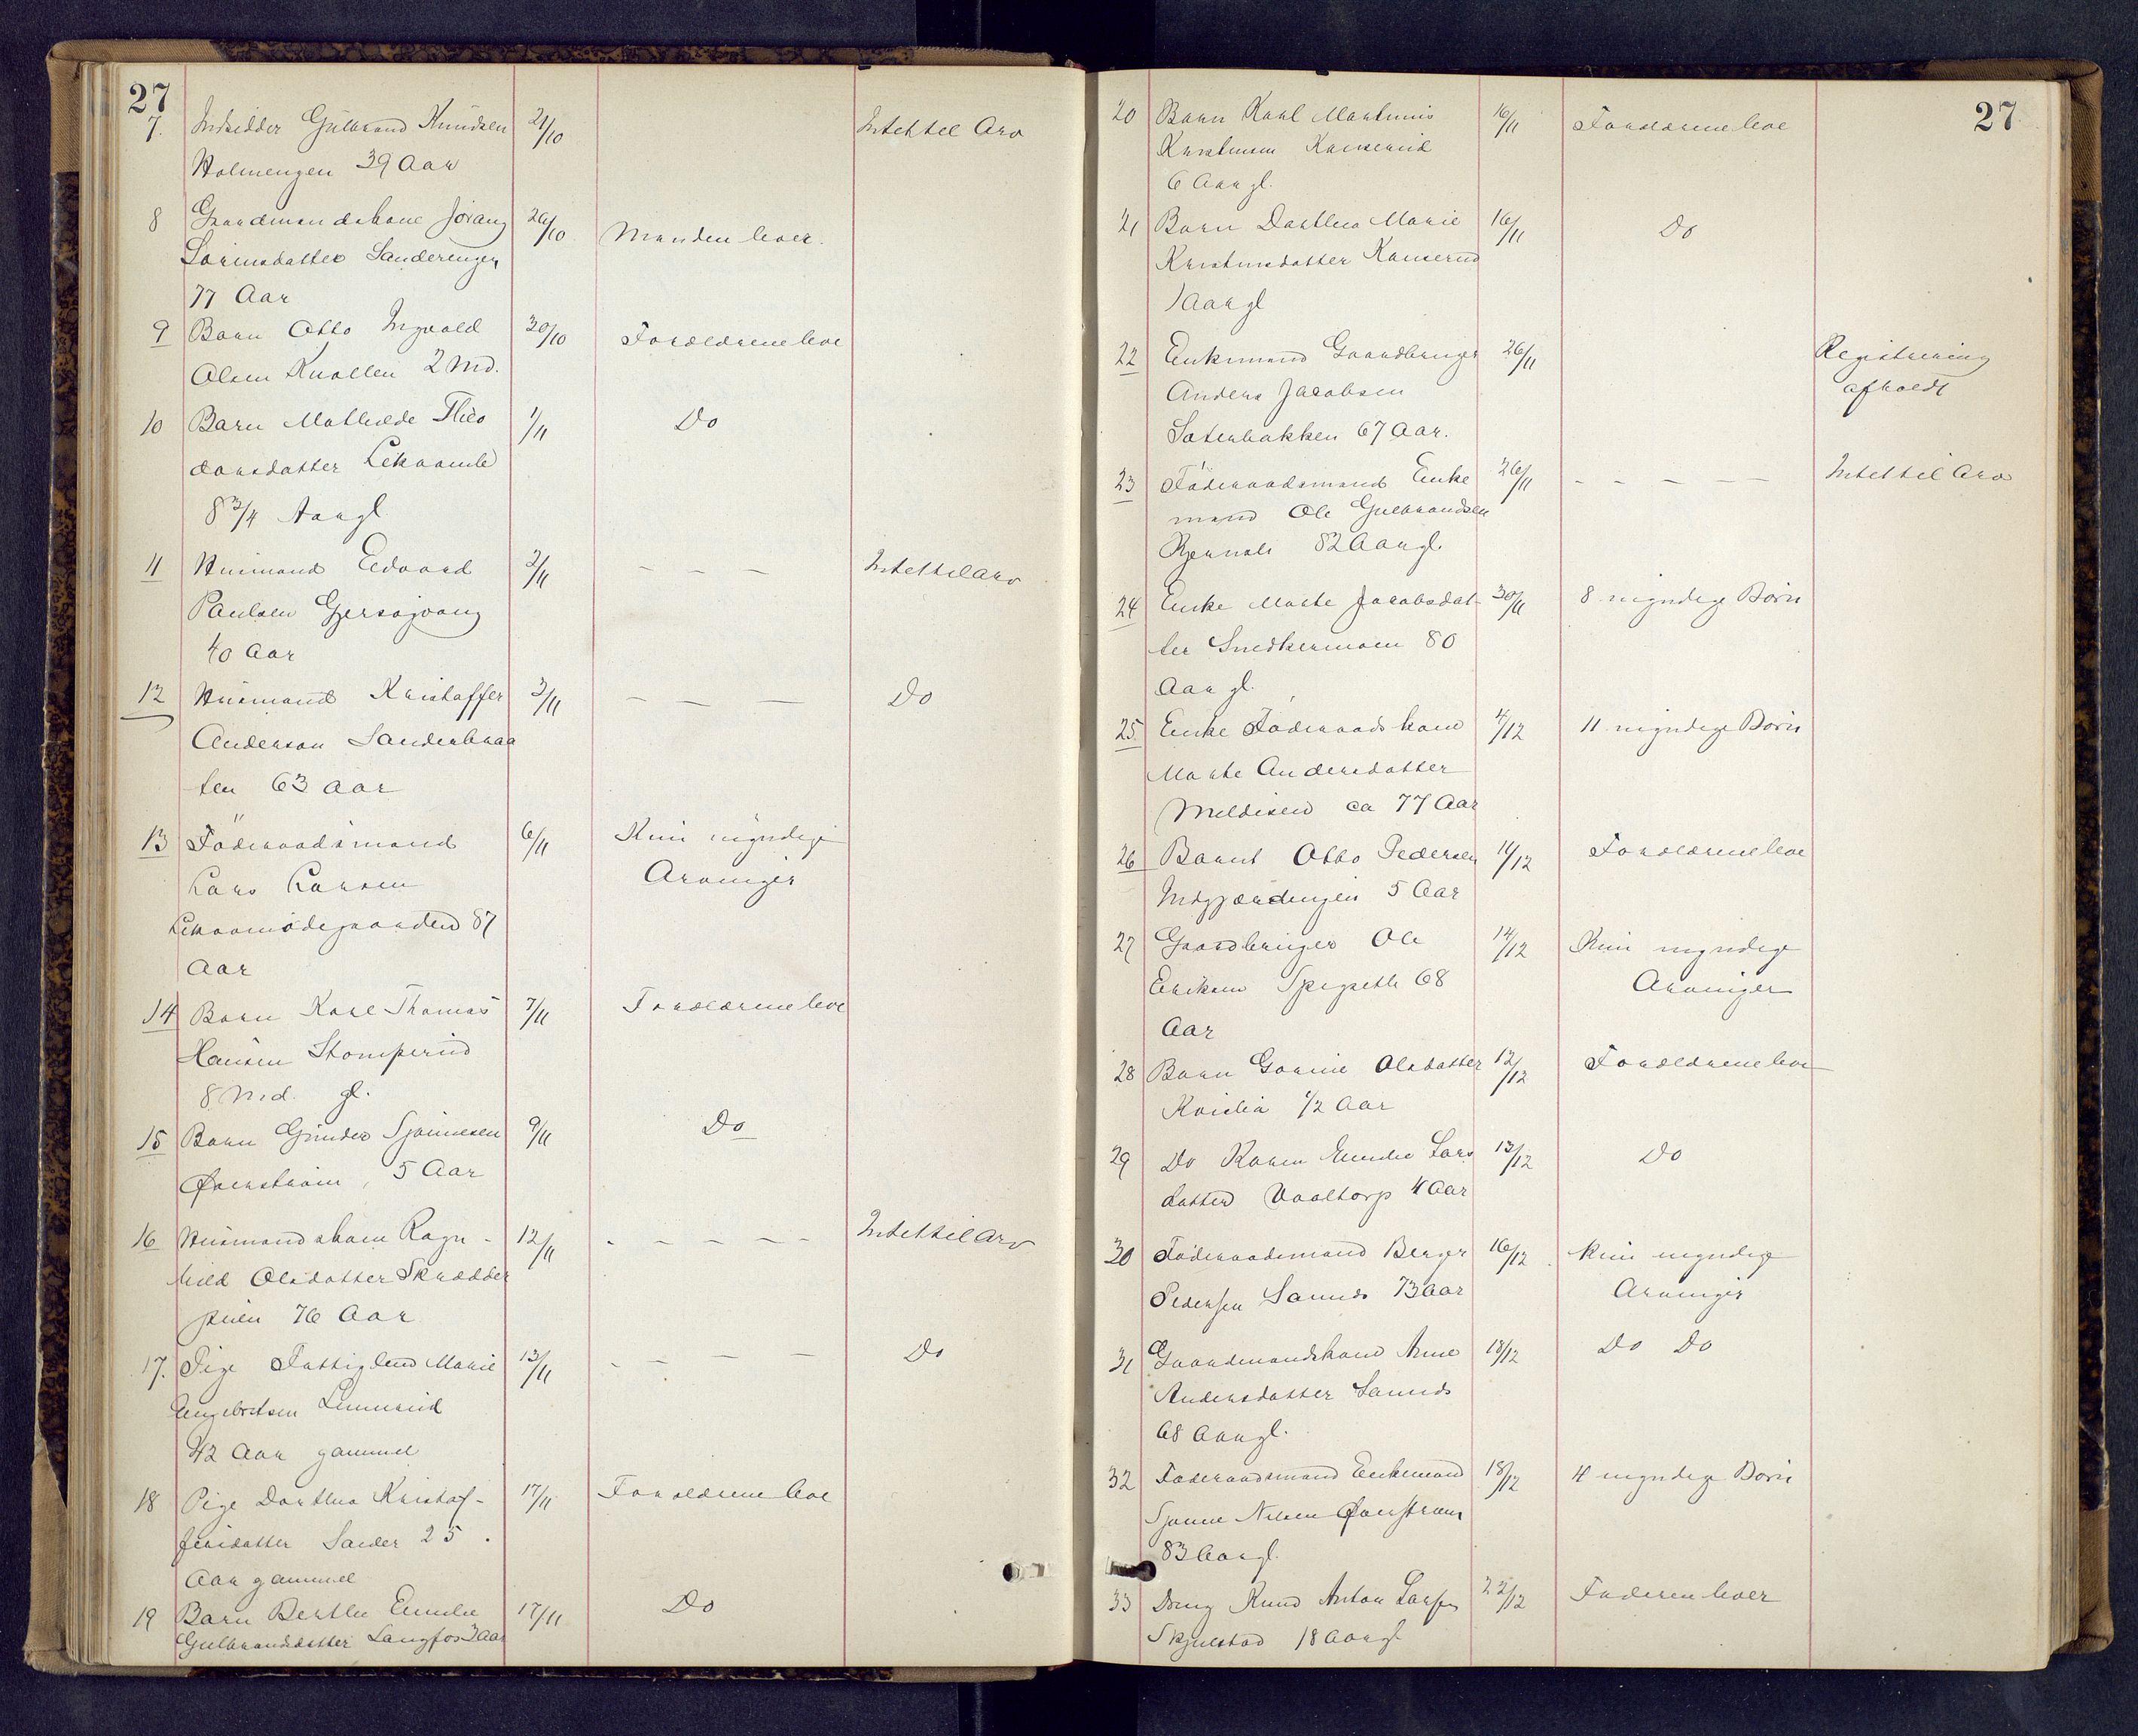 27
7. Indsidder Gulbrand Knudsen 21/10 Intet til Arv
Holmengen 39 Aar
8 Gaardmandskone Jöran 26/10 Manden lever.
Larinsdatter Sanderengen
77 Aar
9 Barn Otto Ingvald 30/10 Forældrene leve
Olsen Knollen 2 Md.
10 Barn Mathilde Theo 1/11 Do
dorsdatter Lekaamle
8 3/4 Aar gl
11 Husmand Edvard 2/11 – – – Intet til Arv
Paulsen Gjersøjvang
40 Aar
12 Husmand Kristoffer 3/11 – – – Do
Anderson Sanderbraa
ten 63 Aar
13 Föderaadsmand 6/11 Kun myndige
Lars Larsen Arvinger
Lekaamødegaarden 87
Aar
14 Barn Karl Thomas 7/11 Forældrene leve
Hansen Stomperud
8 Md. gl.
15 Barn Gunder Sjønnesen 9/11 Do
Øverstrøm, 5 Aar
16 Husmandskone Ragn- 12/11 – – – – – Intet til Arv
hild Olsdatter Skrædder
pien 76 Aar
17. Pige Fattiglem Marie 13/11 – – – – Do
Engebretsen Linnerud
42 Aar gammel
18 Pige Dorthea Kristof- 17/11 Forældrene leve
fersdatter Sander 25.
Aar gammel
19 Barn Berthe Emilie 17/11 Do
Gulbrandsdatter Langfos 3 Aar
27
20 Barn Karl Martinius 16/11 Forældrene leve
Kristensen Kanserud
6 Aar gl.
21 Barn Dorthea Marie 16/11 Do
Kristensdatter Kanserud
1 Aar gl
22 Enkemand Gaardbruger 26/11 Registrering
Anders Jacobsen afholdt
Saterbakken 67 Aar.
23 Föderaadsmand Enke 26/11 – – – – – Intet til Arv
mand Ole Gulbrandsen
82 Aar gl.
24 Enke Marte Jacobsdat- 30/11 8 myndige Börn
ter Snedkermoen 80
Aar gl.
25 Enke Föderaadskone 4/12 11 myndige Börn
Marte Andersdatter
Meldiseie ca 77 Aar
26 Barnet Otto Pedersen 11/12 Forældrene leve
Indgjærdingen 5 Aar
27 Gaardbruger Ole 14/12 Kun myndige
Eriksen Spigseth 68 Arvinger
Aar
28 Barn Gorine Olsdatter 12/12 Forældrene leve
Kvislia 1/2 Aar
29 Do Karen Emilie Lars 13/12 Do
datter Vaaltorp 4 Aar
30 Föderaadsmand Berger 16/12 Kun myndige
Pedersen Sannes 73 Aar Arvinger
31 Gaardmandskone Anne 18/12 Do Do
Andersdatter Sannes
68 Aar gl.
32 Föderaadsmand Enkemand 18/12 4 myndige Börn
Sjønne Nilsen Øverstrøm
83 Aar gl.
33 Dreng Knud Anton Larsen 22/12 Faderen lever
Skjulstad 18 Aar gl